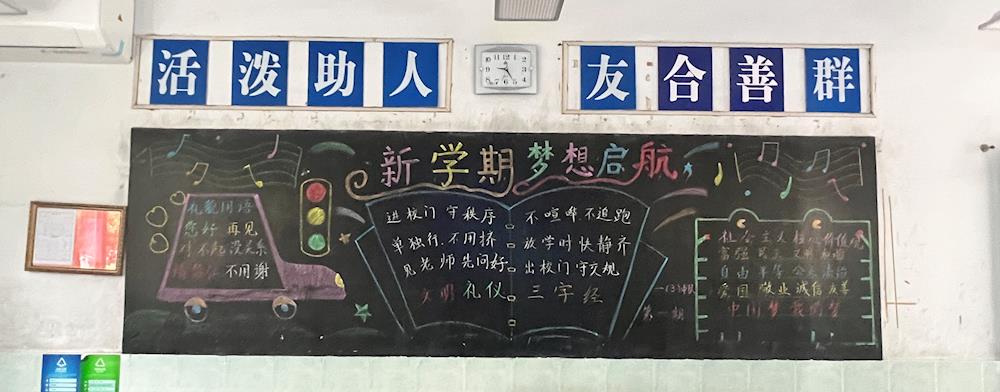 活泼助人
友合善群
新学期梦想启航
礼貌用语
您好 再见
对不起 没关系
不用谢
进校门 守秩序
单独行 不用挤
见老师 先问好
文明礼仪
不喧哗 不追跑
放学时 快静齐
出校门 守交规
三字经
一(3)班
第一期
社会主义核心价值观
富强 民主 文明 和谐
自由 平等 公正 法治
爱国 敬业 诚信 友善
中国梦 我的梦